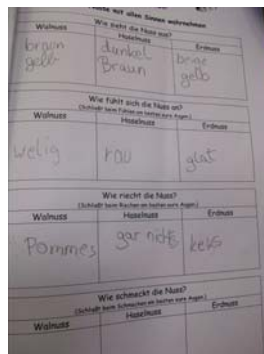 mit allen Sinnen wahrnehmen
Wie sieht die Nuss aus?
Walnuss Haselnuss Erdnuss
braun dunkel beige
gelb Braun gelb
Wie fühlt sich die Nuss an?
(Schließt beim Fühlen am besten eure Augen.)
Walnuss Haselnuss Erdnuss
welig rau glat
Wie riecht die Nuss?
(Schließt beim Riechen am besten eure Augen.)
Walnuss Haselnuss Erdnuss
Pommes gar nichts keks
Wie schmeckt die Nuss?
(Schließt beim Schmecken am besten eure Augen.)
Walnuss Haselnuss Erdnuss